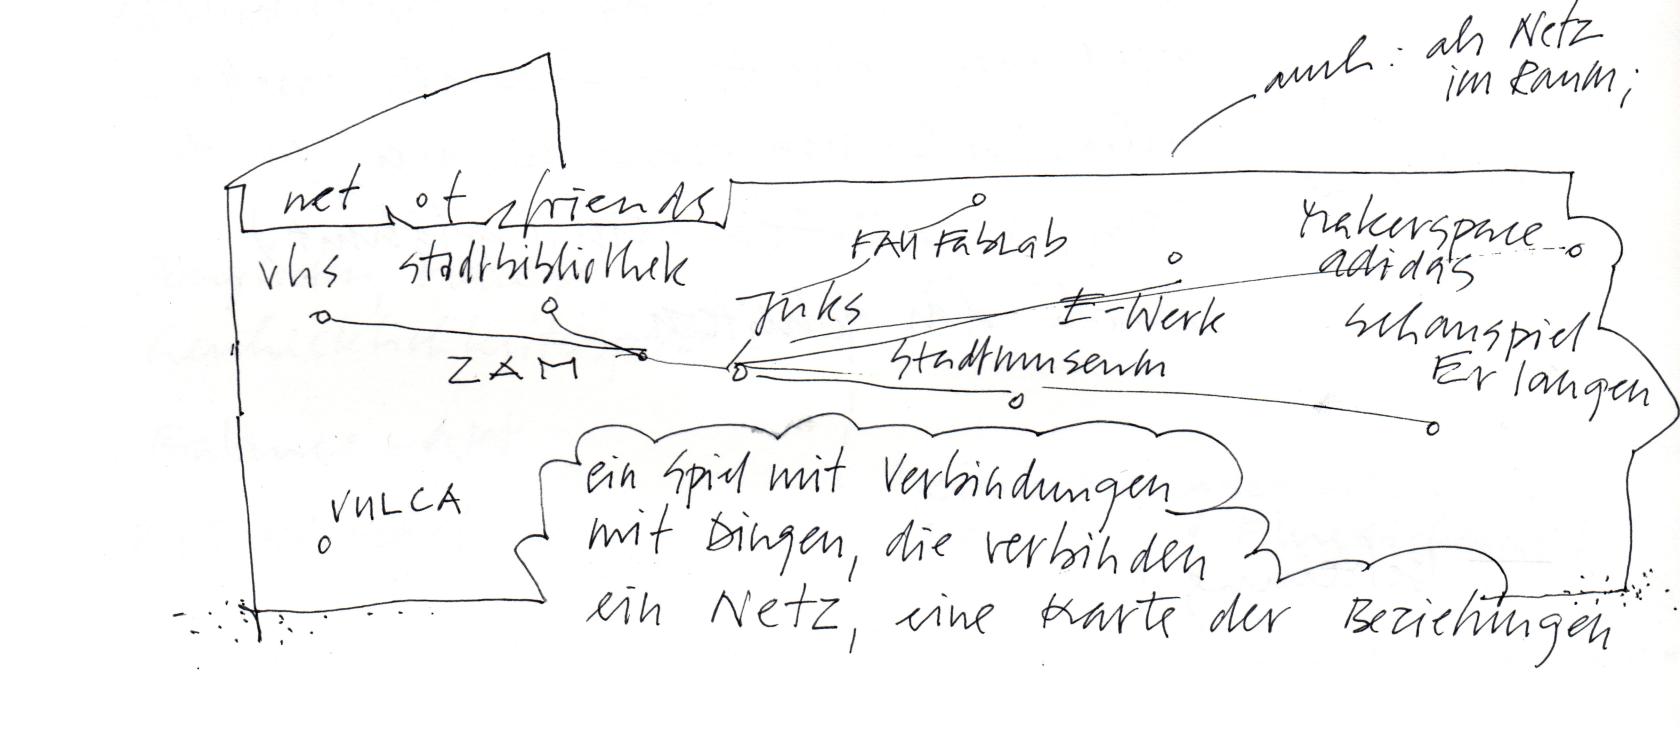 auch: als Netz
im Raum;
net of friends
vhs stadtbibliothek
FAU FabLab
Makerspace
adidas
Juks
E-Werk
Schauspiel
Erlangen
ZAM
Stadtmuseum
VULCA
ein Spiel mit Verbindungen
mit Dingen, die verbinden
ein Netz, eine Karte der Beziehungen